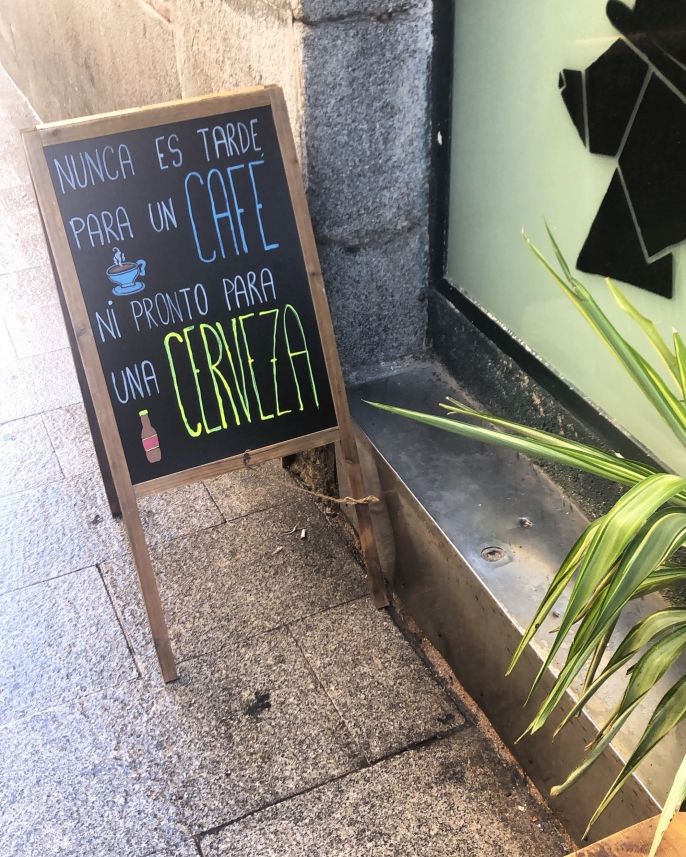 NUNCA ES TARDE
PARA UN CAFÉ
Ni PRONTO PARA
UNA CERVEZA